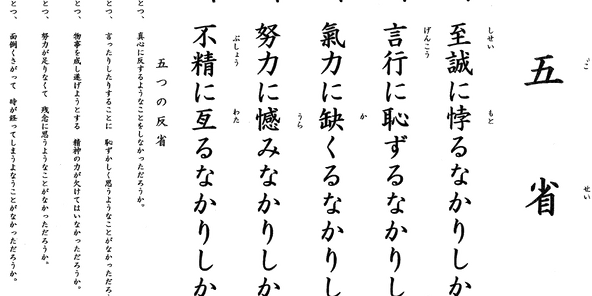 五省
ごせい
至誠に悖るなかりしか
しせい
もと
言行に恥ずるなかりし
げんこう
氣力に缺くるなかりしか
か
努力に憾みなかりしか
うら
不精に亙るなかりしか
ぶしょう
わた
五つの反省
とつ、真心に反するようなことをしなかっただろうか。
とつ、言ったりしたりすることに 恥ずかしく思うようなことがなかっただろ
とつ、物事を成し遂げようとする 精神の力が欠けてはいなかっただろうか。
とつ、努力が足りなくて 残念に思うようなことがなかっただろうか。
とつ、面倒くさがって 時が経ってしまうようなことがなかっただろうか。